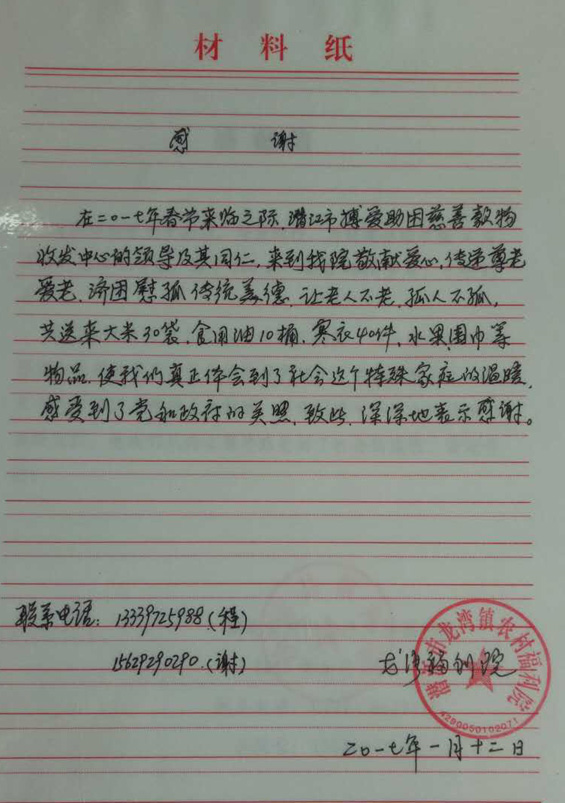 材料纸
感 谢
在二〇一七年春节来临之际,潜江市博爱助困慈善款物
收发中心的领导及其同仁,来到我院敬献爱心,传递尊老
爱老,济困慰孤传统美德,让老人不老,孤人不孤,
共送来大米30袋,食用油10桶,寒衣40件,水果围巾等
物品,使我们真正体会到了社会这个特殊家庭的温暖,
感受到了党和政府的关照,致此,深深地表示感谢。
联系电话:13339725988(程)
15629290290(谢)
龙湾福利院
潜江市龙湾镇农村福利院
4290050102071
二〇一七年一月十二日